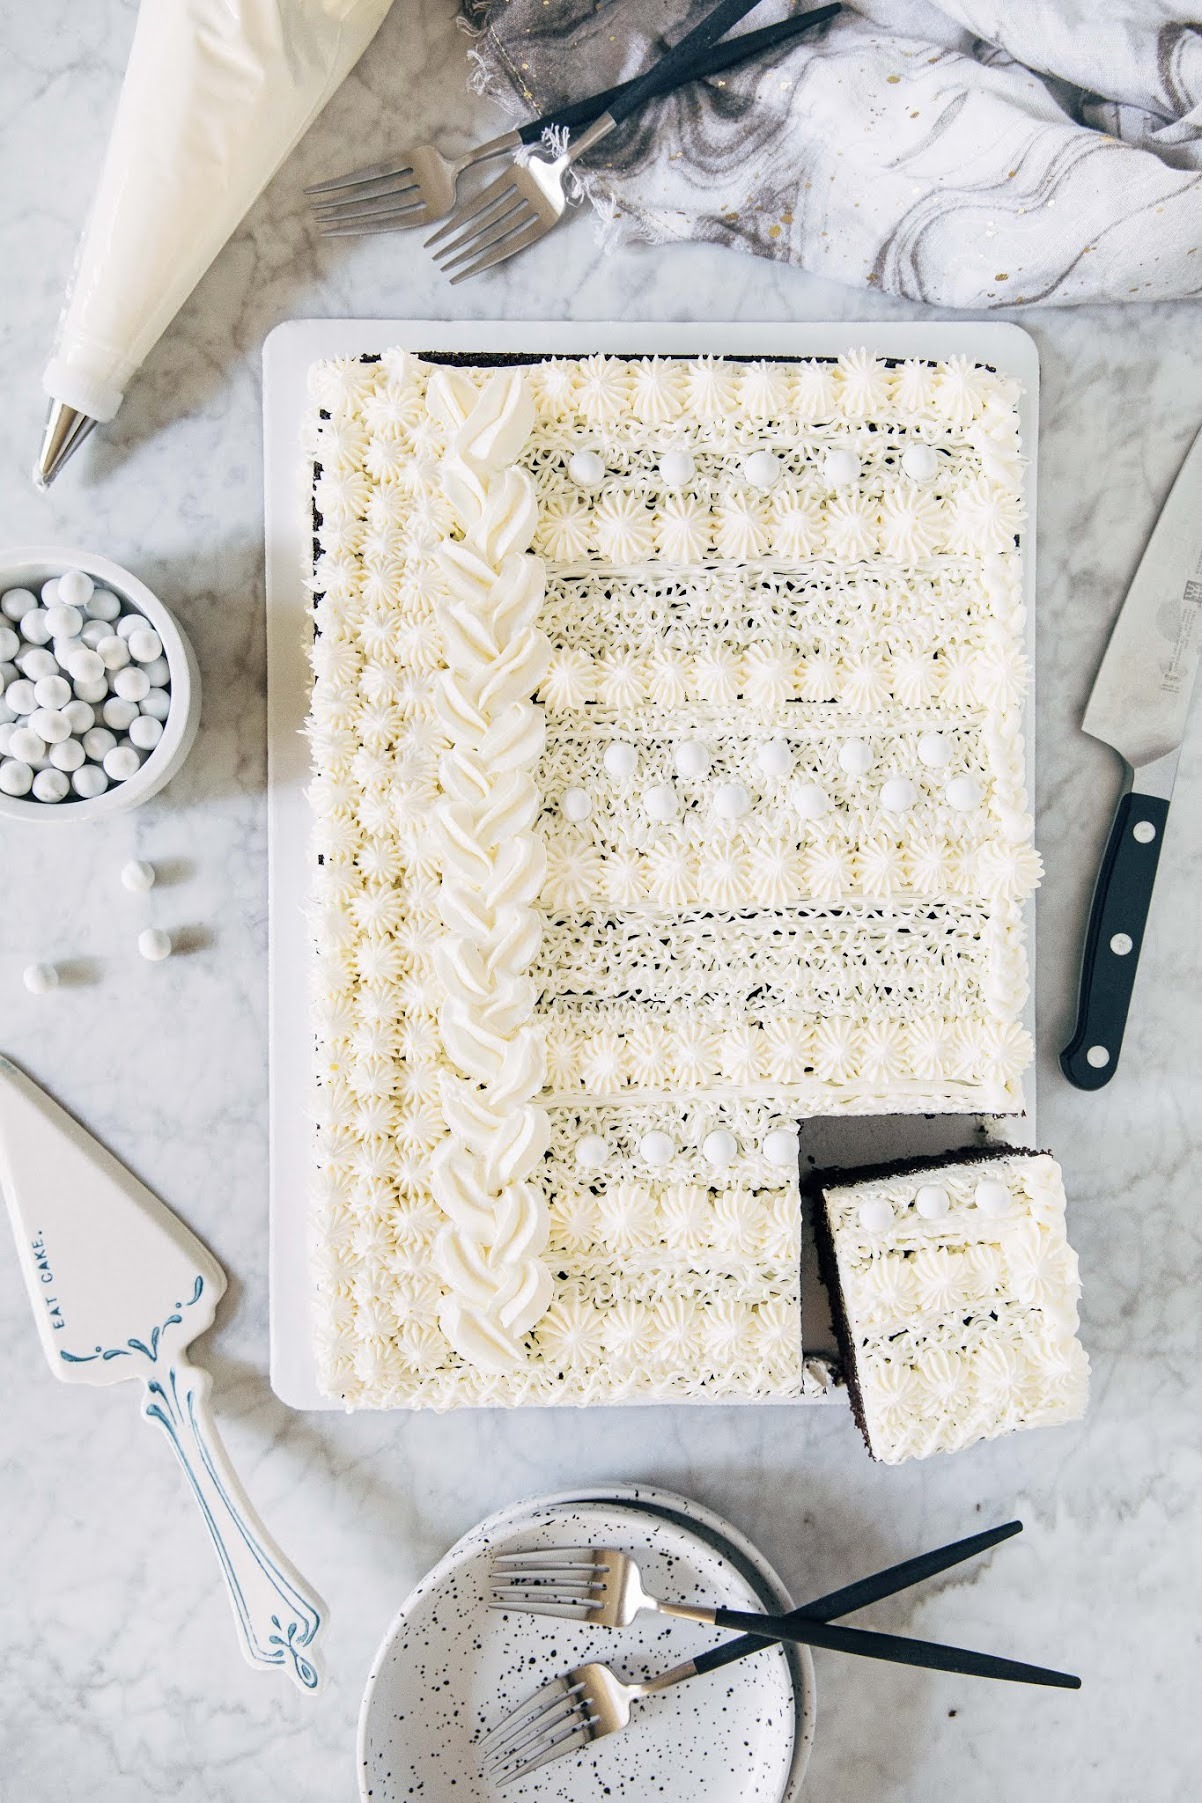 EAT CAKE.